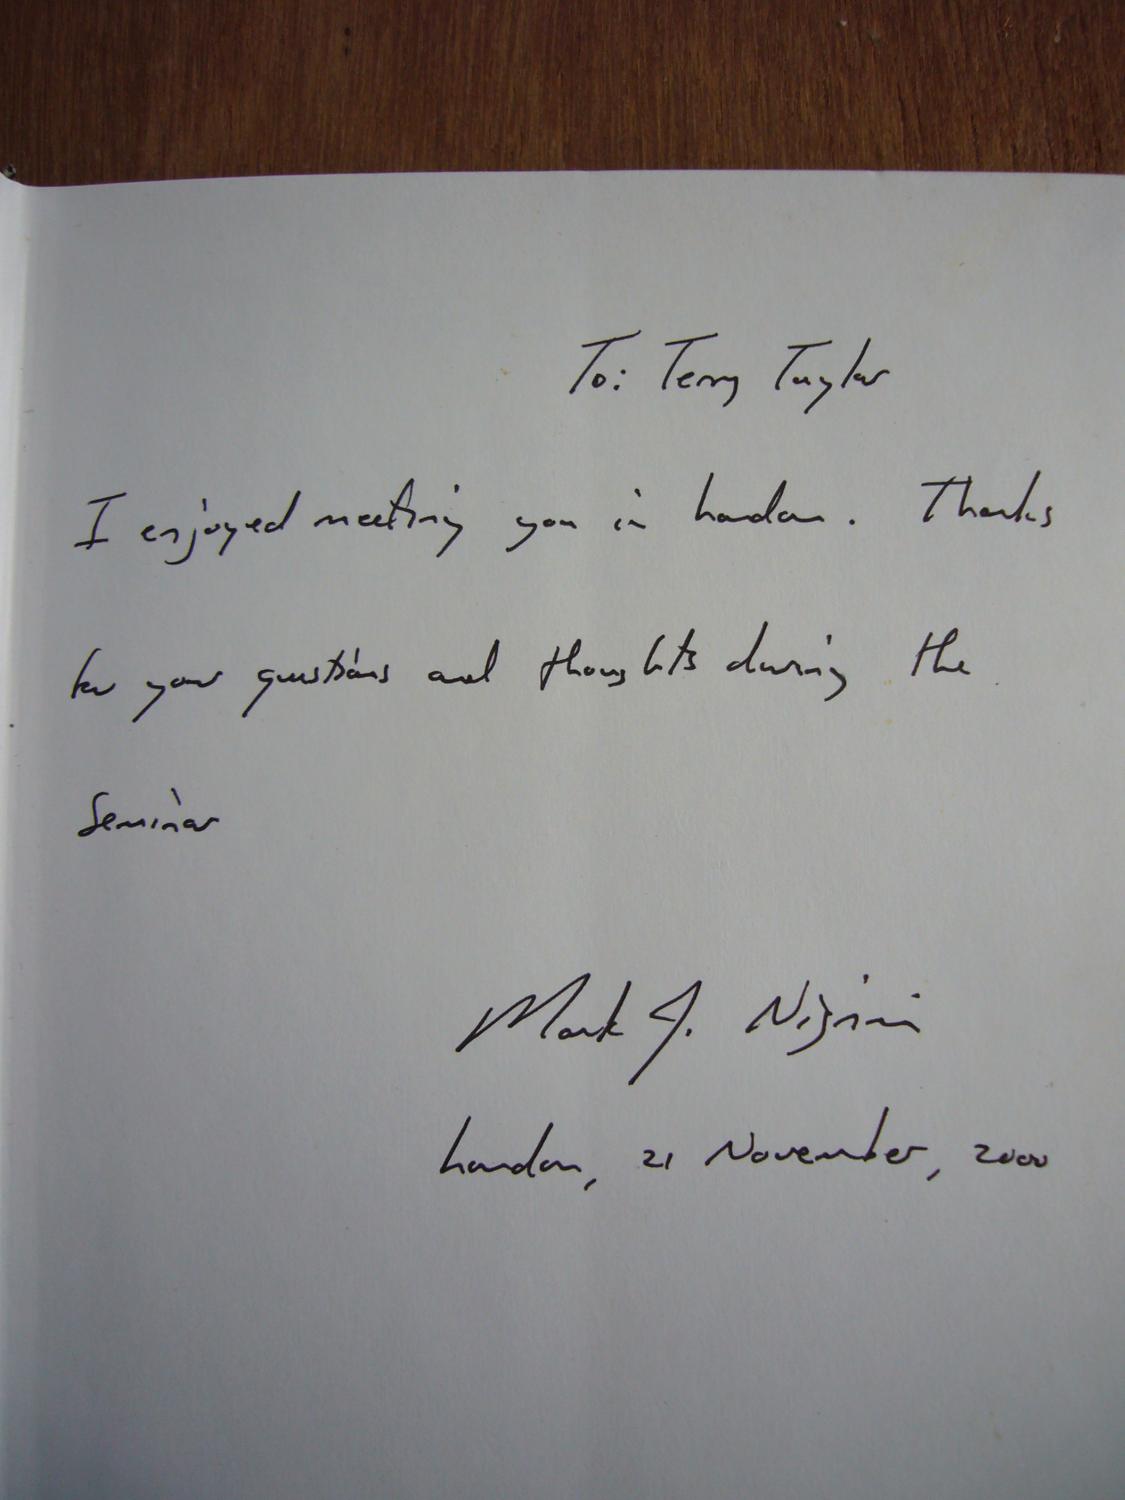 To: Terry Taylor
I enjoyed meeting you in London. Thanks
for your questions and thoughts during the
Seminar
Mark J. Nigrini
London, 21 November, 2000